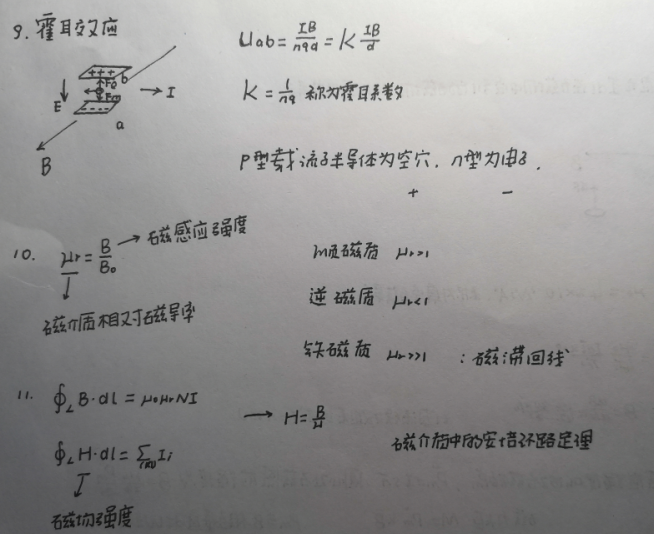 9. 霍耳效应
Uab = IB/nqd = K IB/d
K = 1/nq 称为霍耳系数
+ + +
b
E
I
- - -
a
B
P型载流子半导体为空穴, n型为电子.
+ -
10. μr = B/B₀ → 磁感应强度
磁介质相对磁导率
顺磁质 μr>1
逆磁质 μr<1
铁磁质 μr>>1 : 磁滞回线
11. ∮L B·dl = μ₀μrNI
→ H = B/μ
∮L H·dl = ∑ Ii
磁介质中的安培环路定理
磁场强度